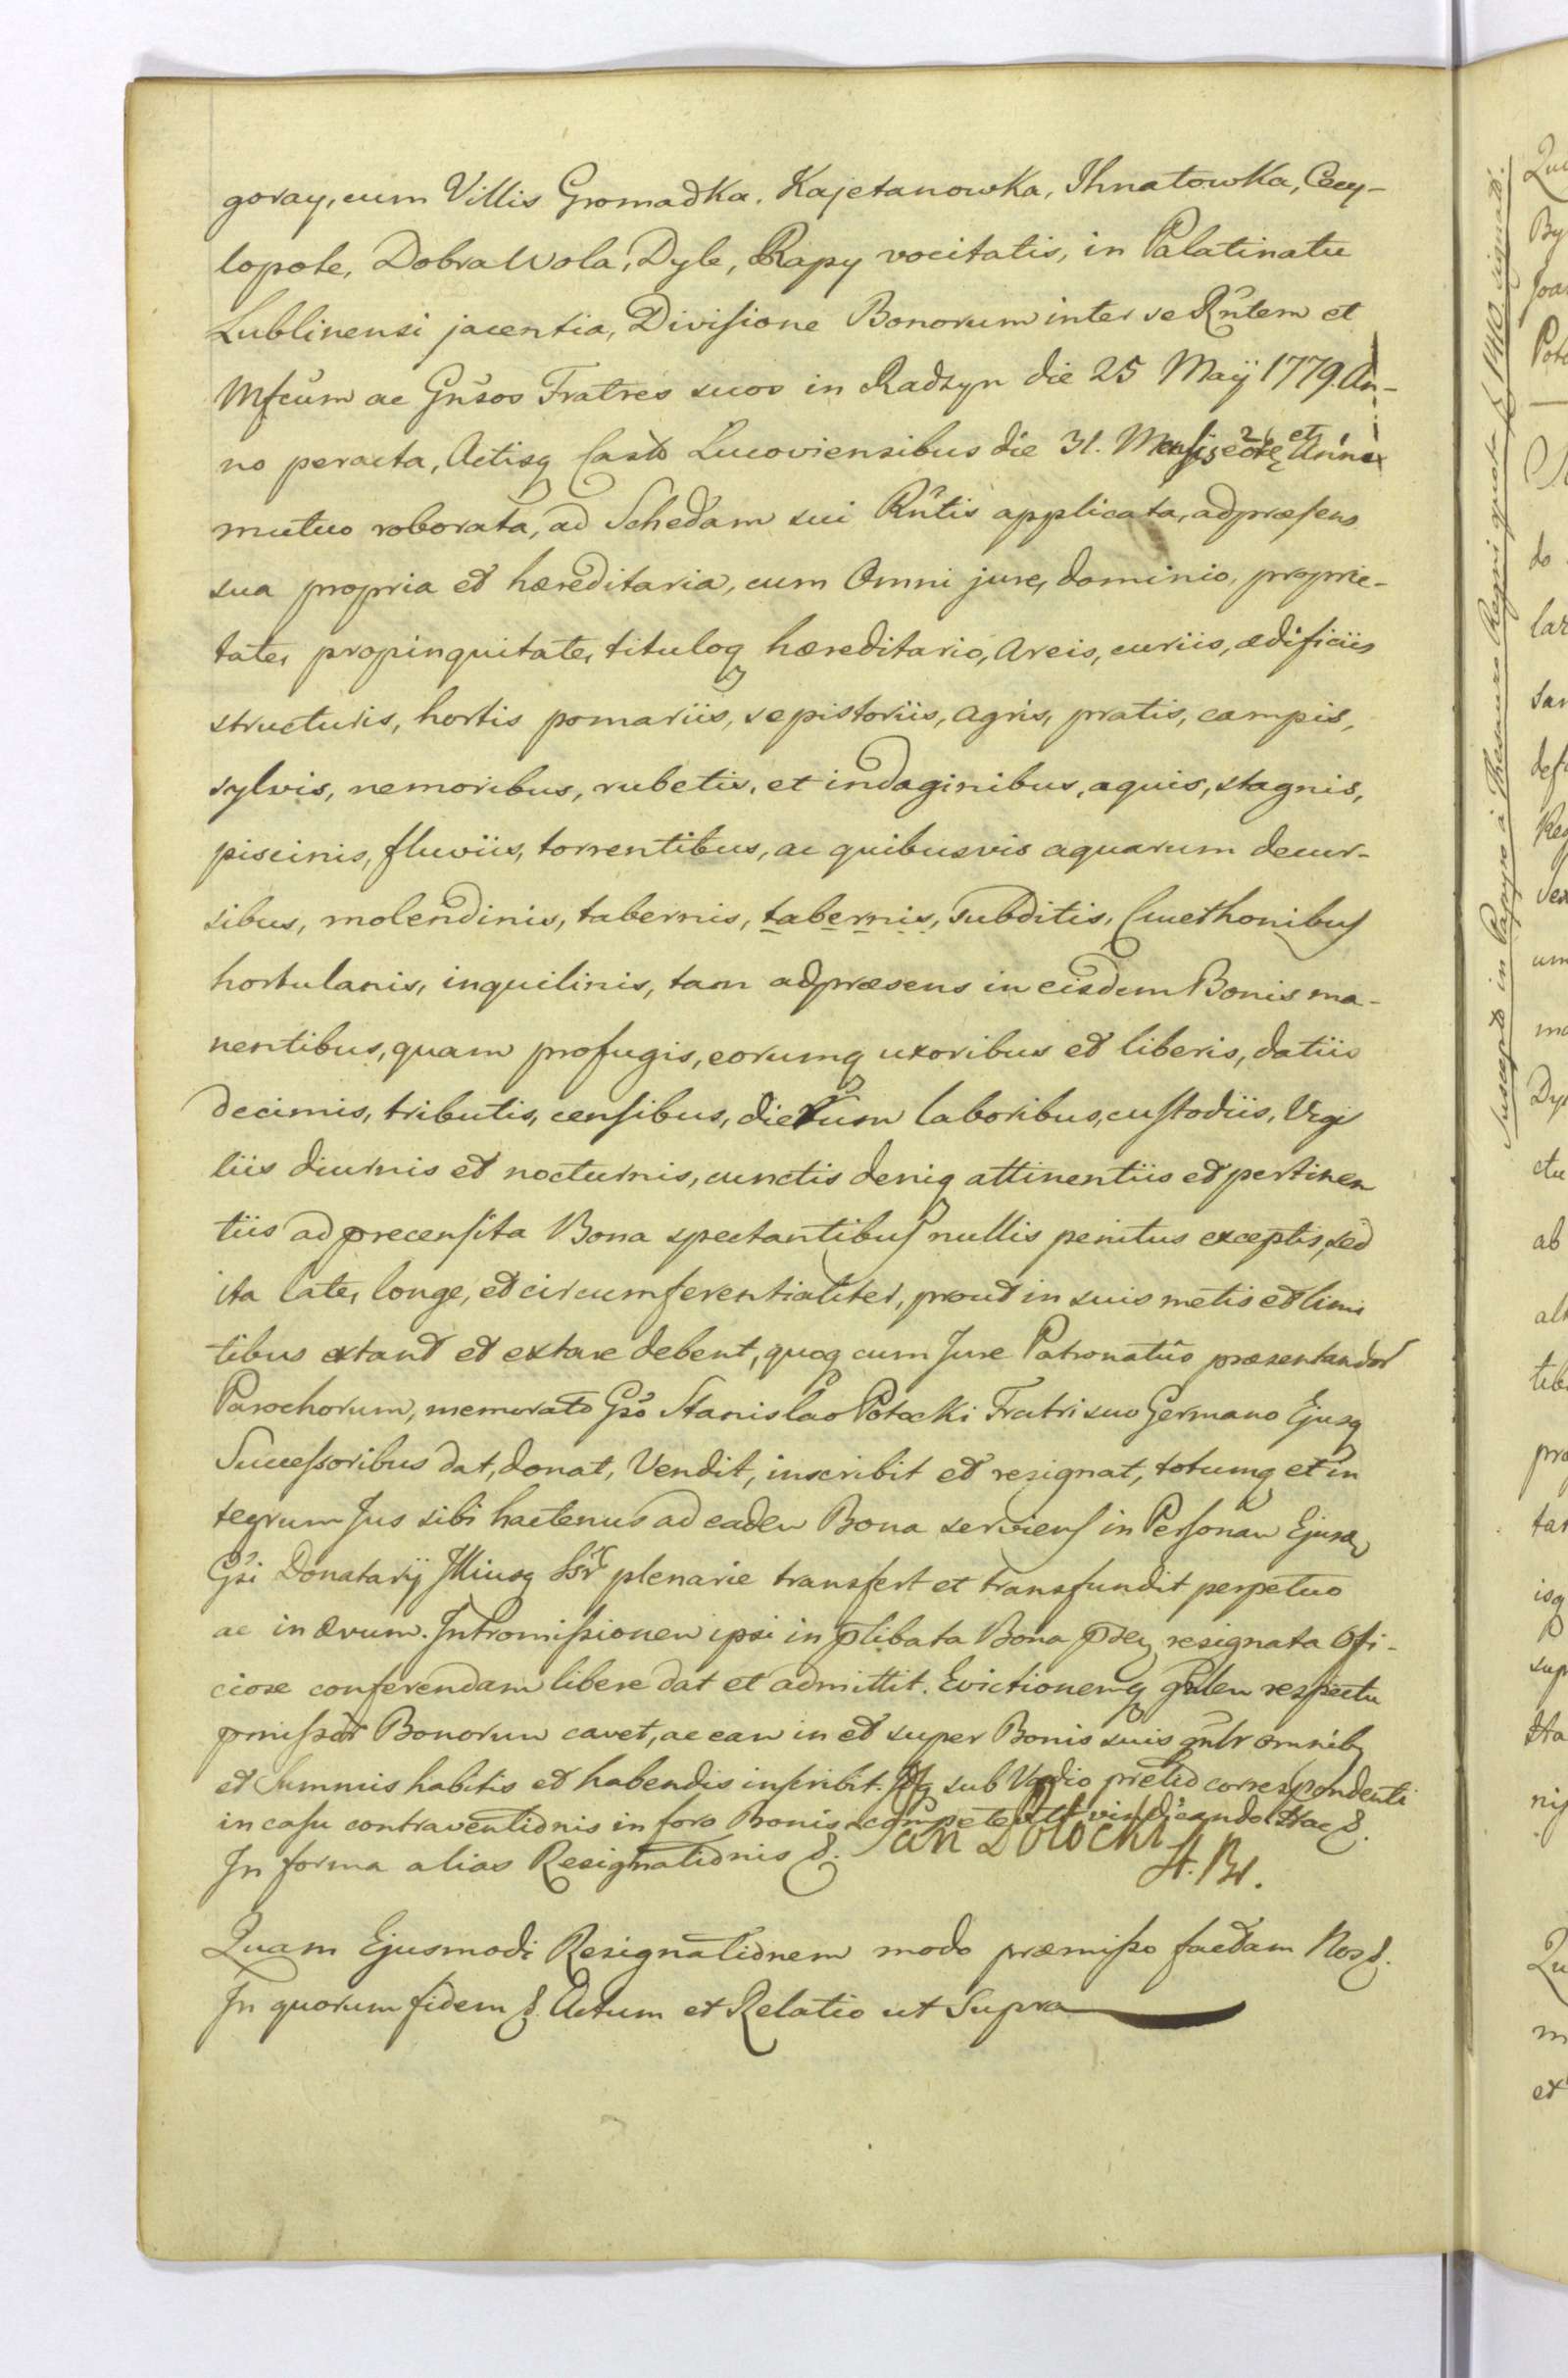 goray, cum Villis Gromadka, Kajetanowka, Ihnatowka, Cecy-
lopole, Dobra Wola, Dyle, Rapy vocitatis, in Palatinatu
Lublinensi jacentia, Divisione Bonorum inter se Rñtem et
Mfcum ac Gñsos Fratres suos in Radzyn die 25 Maij 1779 An-
no peracta, Actisq Castr Lucoviensibus die 31. Mensis et Anni
mutuo roborata, ad Schedam sui Rñtis applicata, adpræsens
sua propria et hæreditaria, cum Omni jure, dominio, proprie-
tate, propinquitate, tituloq hæreditario, Areis, curiis, ædificiis
structuris, hortis pomariis, sepistoriis, agris, pratis, campis,
sylvis, nemoribus, rubetis, et indaginibus, aquis, stagnis,
piscinis, fluviis, torrentibus, ac quibusvis aquarum decur-
sibus, molendinis, tabernis, tabernis, subditis, Cmethonibus
hortulanis, inquilinis, tam adpræsens in eisdem Bonis ma-
nentibus, quam profugis, eorumq uxoribus et liberis, datiis
decimis, tributis, censibus, dierum laboribus, custodiis, Vigi
liis diurnis et nocturnis, cunctis deniq attinentiis et pertinen
tiis ad precensita Bona spectantibus nullis penitus exceptis, sed
ita late, longe, et circumferentialiter, prout in suis metis et limi
tibus extant et extare debent, quoq cum Jure Patronatus præsentandor
Parochorum, memorato Gso Stanislao Potocki Fratri suo Germano Ejusq
Successoribus dat, donat, Vendit, inscribit et resignat, totumq et in
tegrum Jus sibi hactenus ad eadem Bona serviens in Personam Ejusd
Gsi Donatarij Illiusq Ssr plenarie transfert et transfundit perpetuo
ac in ævum. Intromissionem ipsi in plibata Bona resignata Offi-
ciose conferendam libere dat et admittit. Evictionemq gñlem respectu
pmissor Bonorum cavet, ac eam in et super Bonis suis gñlr omnib
et Summis habitis et habendis inscribit. Idq sub Vadio pretio correspondenti
in casu contraventionis in foro Bonis competenti vindicando Hac &.
In forma alias Resignationis &. Jan Potocki
St. Br.
Quam Ejusmodi Resignationem modo præmisso factam Nos &.
In quorum fidem &. Actum et Relatio ut Supra
Suscepto in Papyro à Thesauro Regni signato